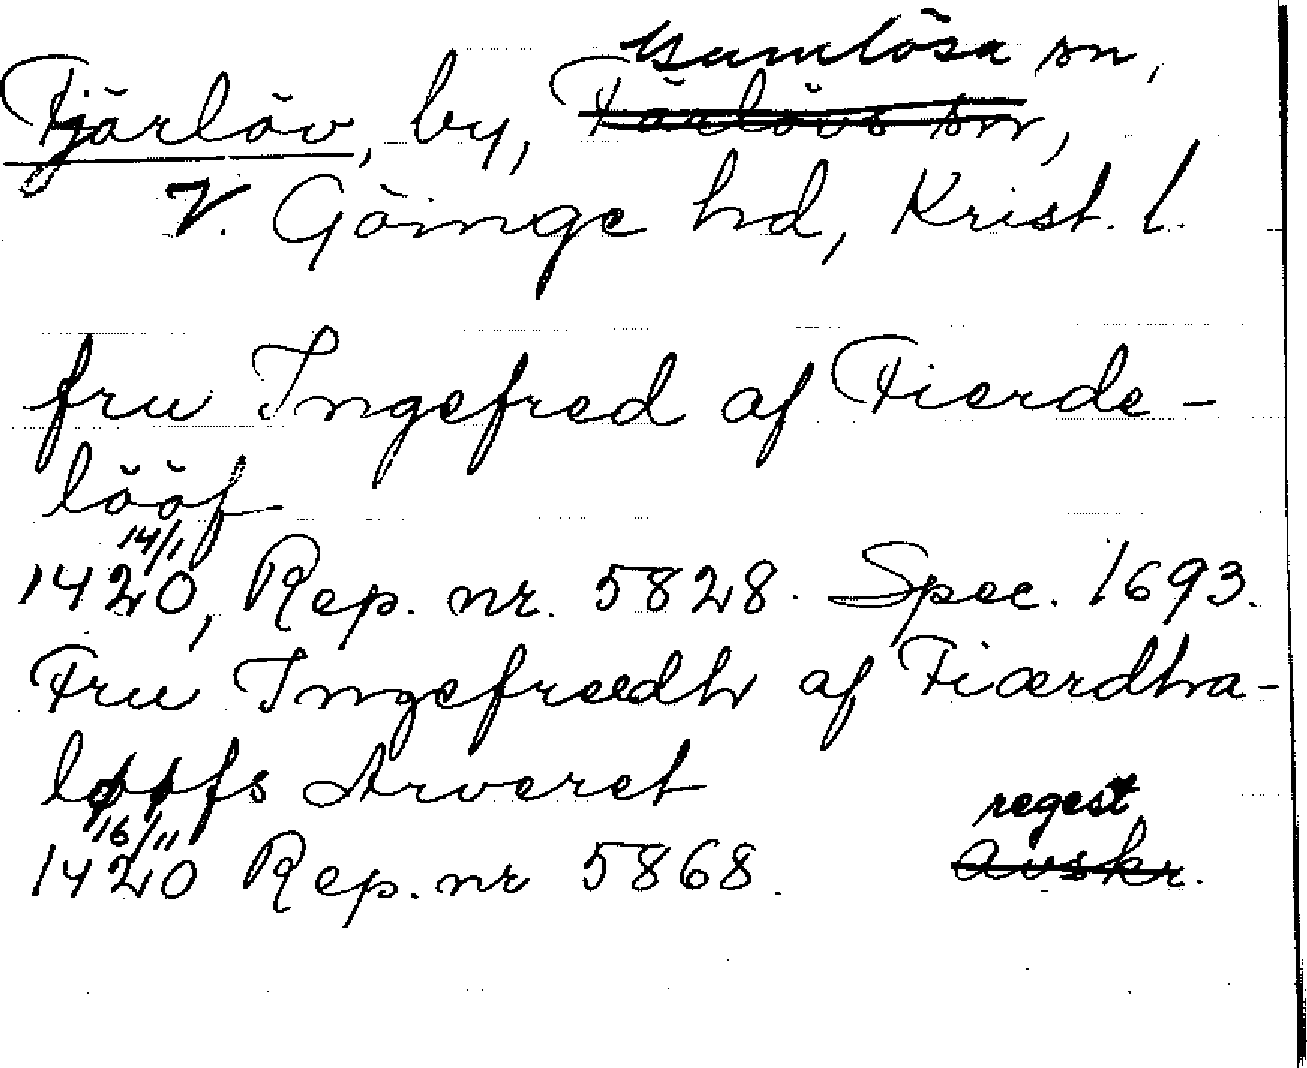 Gumlösa sn,
Fjärlöv, by, Färlövs sn,
V. Göinge hd, Krist. l.
fru Ingefred af Fierde-
lööf
14/1
1420, Rep. nr. 5828. Spec. 1693.
Fru Ingefrædh af Fiærdha-
løøfs Arveret
16/11 regest
1420 Rep. nr 5868. avskr.